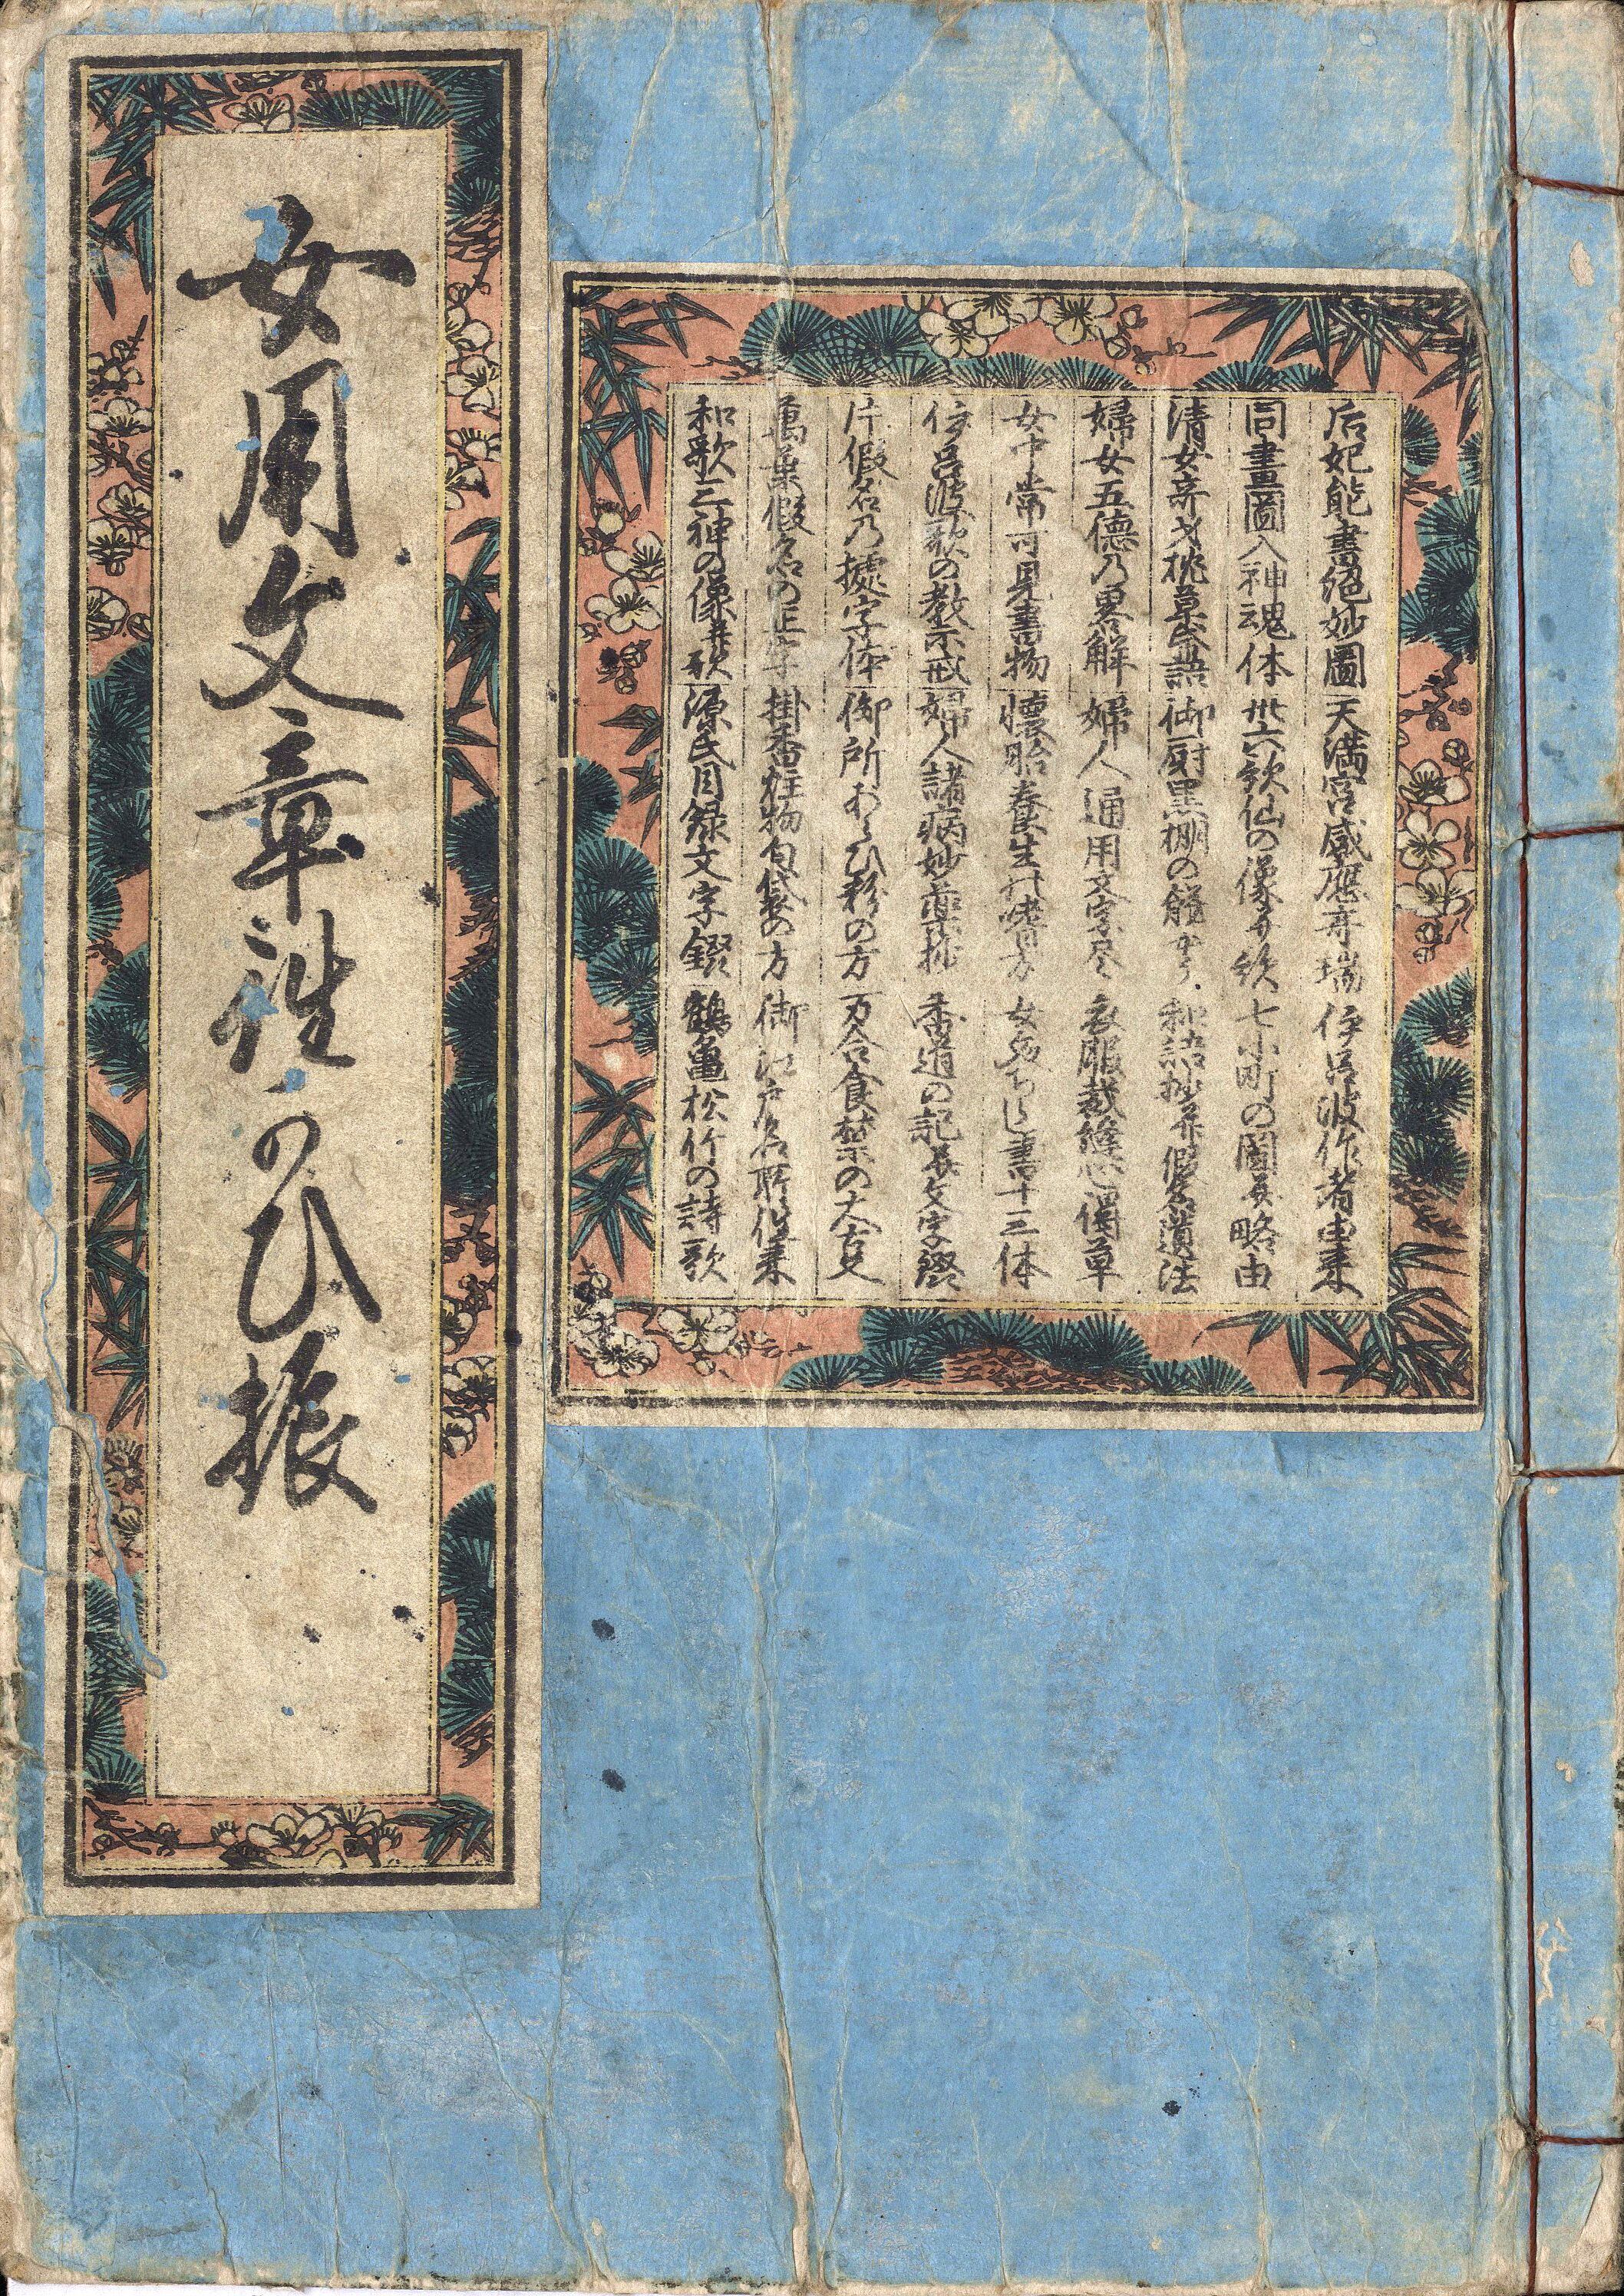 女用文章往かひ振
后妃能書絶妙圖 天満宮感應奇瑞 伊呂波作者由来
同畫圖入神魂体 卅六歌仙の像并歌 七小町の圖并略由
清女奇才枕草紙 御厨黒棚の餝かた 和語抄并假名遣法
婦女五德乃畧解 婦人通用文字尽 衣服裁縫心得草
女中常可見書物 懐胎養生并心得方 女ちらし書十三体
伊呂波歌の教示戒 婦人諸病妙藥抄 香道の記并文字鏁
片假名乃據字体 御所あらひ粉の方 万合食禁の大古支
萬葉假名の正字 掛香炷物匂袋の方 御江戸名所往来
和歌三神の像并歌 源氏目録文字鏁 鶴亀松竹の詩歌